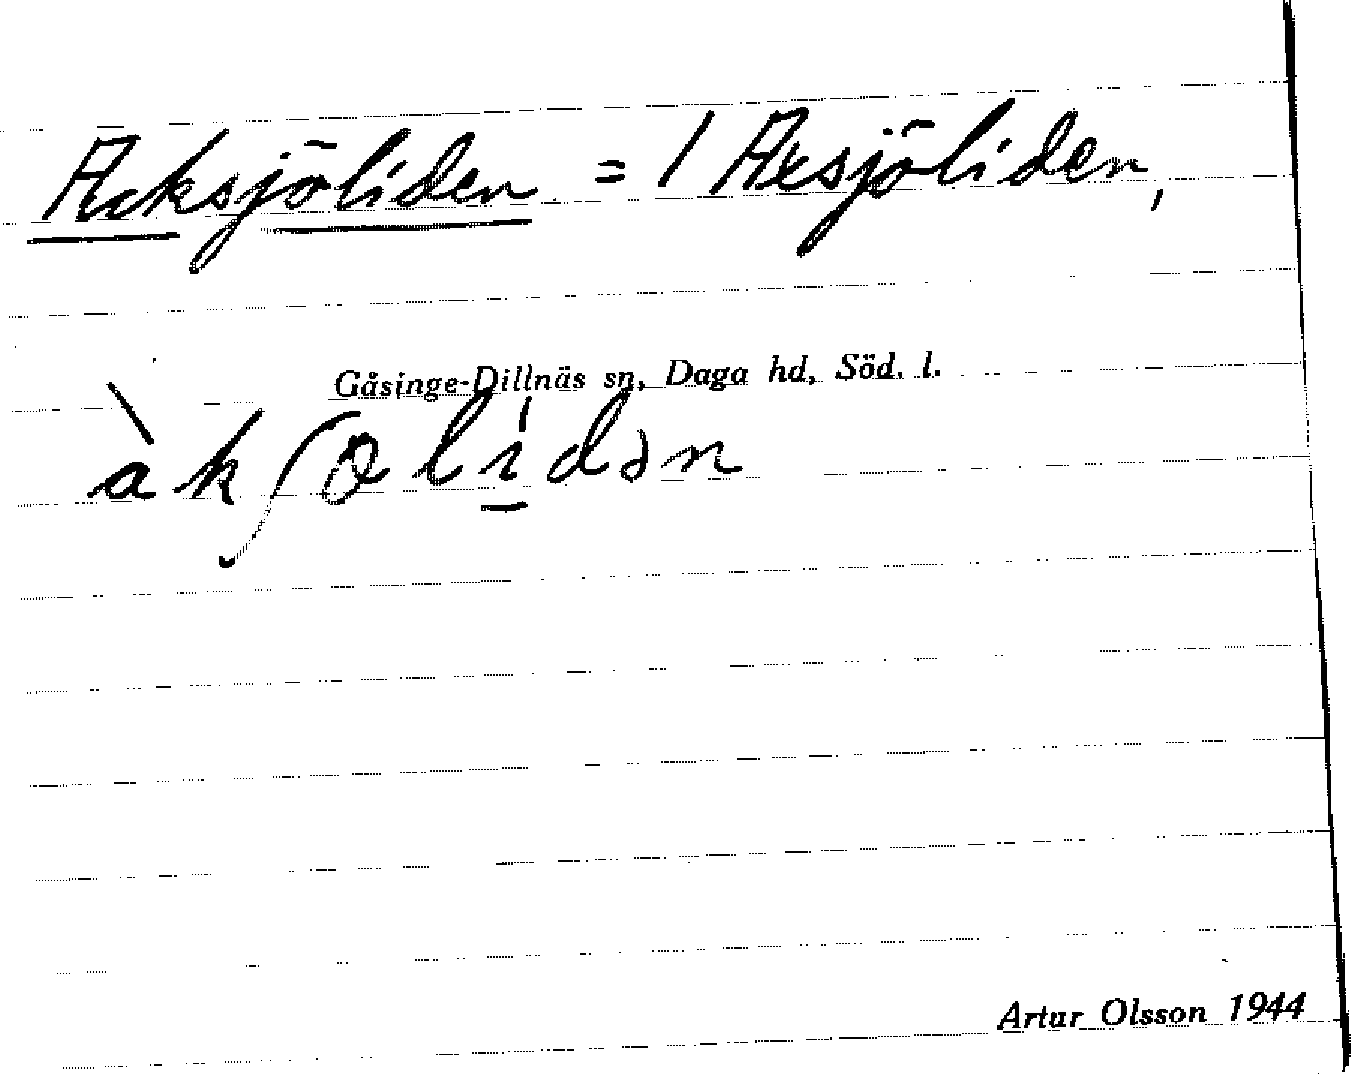 Acksjöliden = / Axsjöliden,
Gåsinge-Dillnäs sn, Daga hd, Söd. l.
àkʃøli̱dən
Artur Olsson 1944